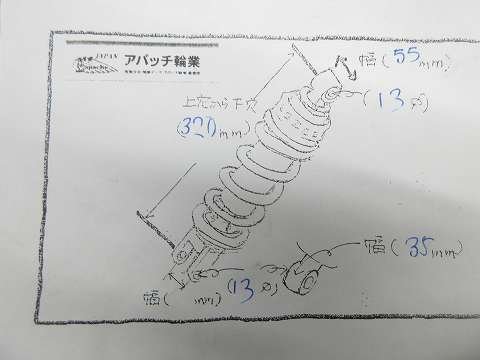 JAPAN
アパッチ輪業
幅(55mm)
(13φ)
上穴から下穴
(320mm)
幅(35mm)
幅(  mm)
(13φ)